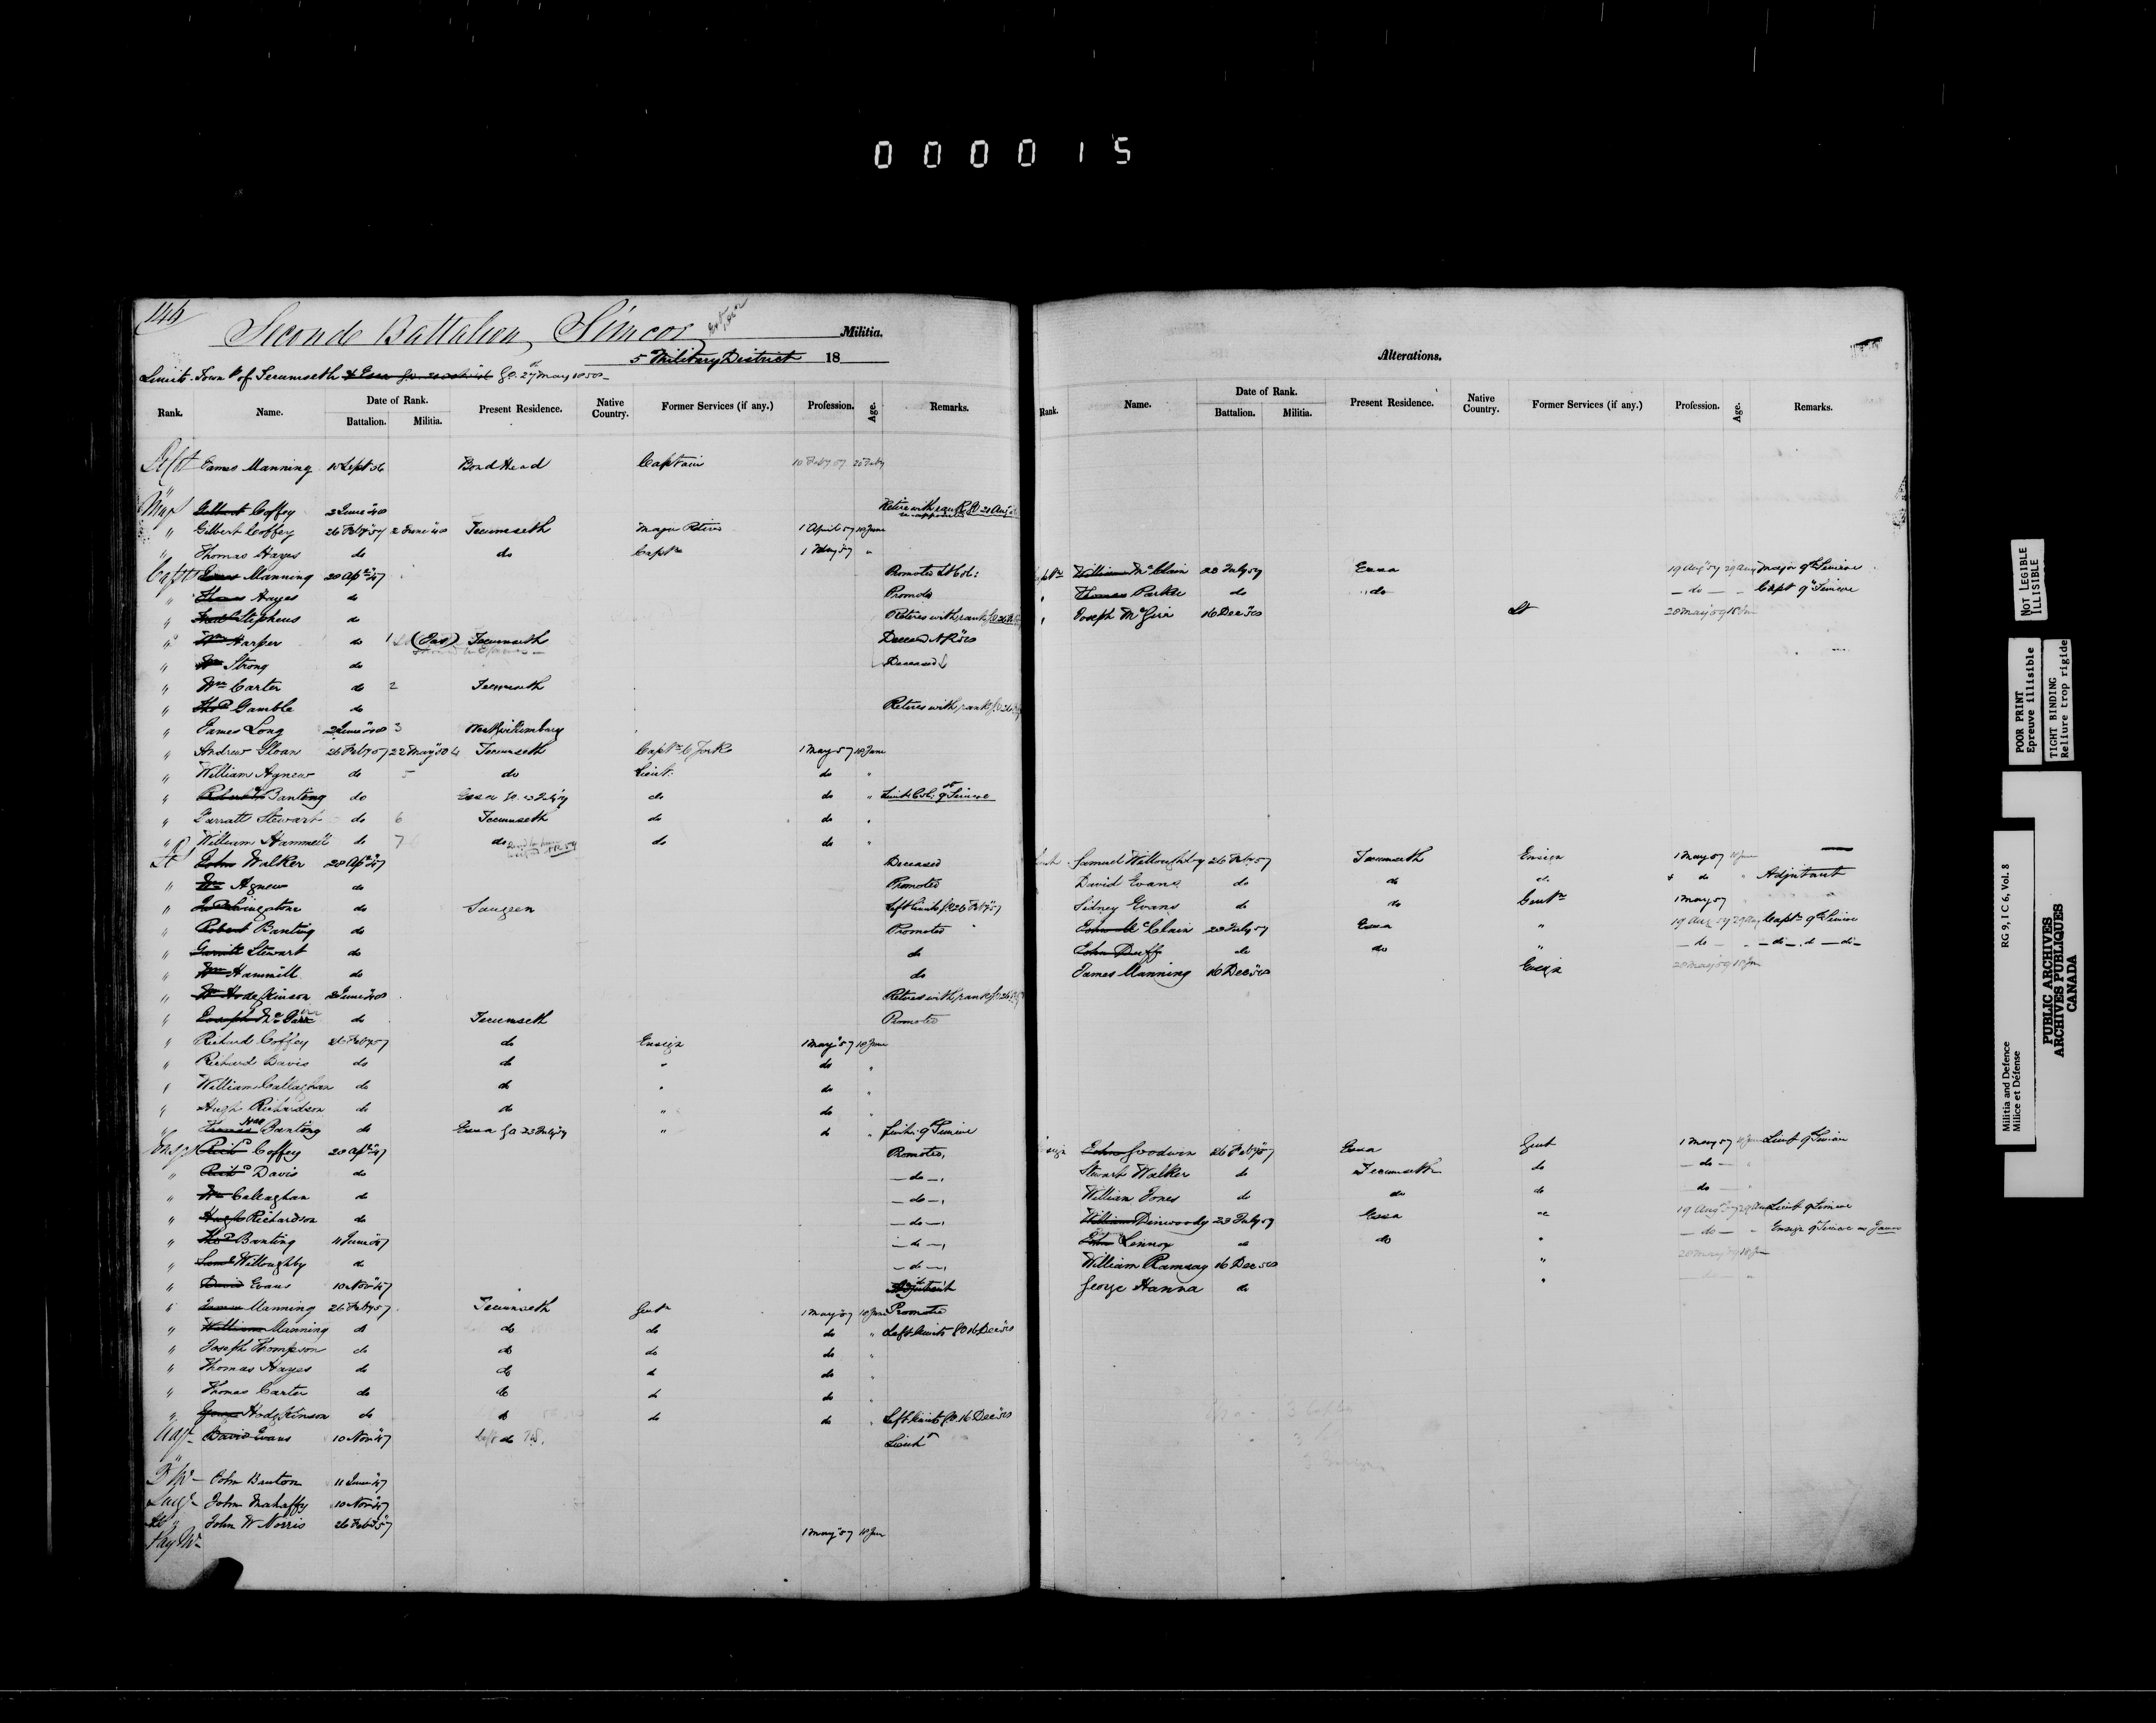 000015
146
Seconde Battalion, Simcoe Militia.
5th Military District 18
Limits. Town P of Tecumseth & Essa G.O. 27 May 1858
Rank. Name. Date of Rank. Present Residence. Native Country. Former Services (if any.) Profession. Age. Remarks.
Battalion. Militia.
James Manning 18 Sept 56 Bond Head Captain 10 Feby 57
Majr Gilbert Coffey 2 June 48 Retires with rank
" Gilbert Coffey 26 Feby 57 2 June 48 Tecumseth Major Retired 1 April 57 18 June
" Thomas Hayes do do Captn 1 May 57 "
Captn James Manning 20 Apr 47 Promoted Lt Col:
" Thomas Hayes do Promoted
" Fred Stephens do Retires with rank
" Wm Harper do 1 (Jas) Tecumseth Deceased
" Wm Strong do Deceased
" Wm Carter do 2 Tecumseth
" Thos Gamble do Retires with rank
" James Long 2 June 48 3 West Gwillimbury
" Andrew Sloan 26 Feby 57 22 May 50 4 Tecumseth Captn 6 York 1 May 57 18 June
" William Agnew do 5 do Lieut. do "
" Robert Banting do Essa G.O. 23 July 57 do do " Lieut Col: 9th Simcoe
" Garratt Stewart do 6 Tecumseth do do "
" William Hammell do 7 do do do "
Lt John Walker 20 Apr 47 Deceased
" Wm Agnew do Promoted
" Livingstone do Saugeen Left limits
" Robert Banting do Promoted
" Garratt Stewart do do
" Wm Hammill do do
" Wm Hodgkinson 2 June 48 Retires with rank
" Joseph McGirr do Tecumseth Promoted
" Richard Coffey 26 Feby 57 do Ensign 1 May 57 18 June
" Richard Davis do do " do "
" William Callaghan do do " do "
" Hugh Richardson do do " do "
" Thomas Banting do Essa G.O. 23 July 57 " do " Lieut. 9th Simcoe
Ensgn Richd Coffey 20 Apr 47 Promoted,
" Richd Davis do — do —,
" Wm Callaghan do — do —,
" Hugh Richardson do — do —,
" Thos Banting 11 June 47 — do —,
" Saml Willoughby do — do —,
" David Evans 10 Nov 47 Adjutant
" James Manning 26 Feby 57 Tecumseth Gentn 1 May 57 18 June Promoted
" William Manning do do do do " Left limits GO 16 Dec 58
" Joseph Thompson do do do do "
" Thomas Hayes do do do do "
" Thomas Carter do do do do "
" George Hodgkinson do do do do " Left limits GO. 16 Dec 58
Adjt David Evans 10 Nov 47 Left do Lieut
Qr Mr John Banton 11 June 47
Surgn John Mahaffy 10 Nov 47
John W Norris 26 Feb 57 1 May 57 18 June
Pay Mr
Alterations.
Rank. Name. Date of Rank. Present Residence. Native Country. Former Services (if any.) Profession. Age. Remarks.
Battalion. Militia.
Captn William McClain 23 July 57 Essa 19 Aug 57 29 Aug Major 9th Simcoe
" Thomas Parker do do — do — Capt 9th Simcoe
" Joseph McGirr 16 Dec 58 Lt 20 May 59 18 Jun
Samuel Willoughby 26 Feby 57 Tecumseth Ensign 1 May 57 18 June
David Evans do do do do Adjutant
Sidney Evans do do Gentn 1 May 57
John McClain 23 July 57 Essa " 19 Aug 57 29 Aug Captn 9th Simcoe
John Duff do do " — do — — do — do
James Manning 16 Dec 58 Ensign 20 May 59 18 Jun
Ensign John Goodwin 26 Feby 57 Essa Gent 1 May 57 18 June Lieut 9th Simcoe
Stewart Walker do Tecumseth do — do —
William Jones do do do do —
William Dinwoody 23 July 57 Essa do 19 Aug 57 29 Aug Lieut 9 Simcoe
John Lennox do do " — do — Ensign 9 Simcoe as James
William Ramsay 16 Dec 58 " 20 May 59 18 Jun
George Hanna do "
NOT LEGIBLE
ILLISIBLE
POOR PRINT
Epreuve illisible
TIGHT BINDING
Reliure trop rigide
Militia and Defence
Milice et Défense
RG 9, I C 6, Vol. 8
PUBLIC ARCHIVES
ARCHIVES PUBLIQUES
CANADA